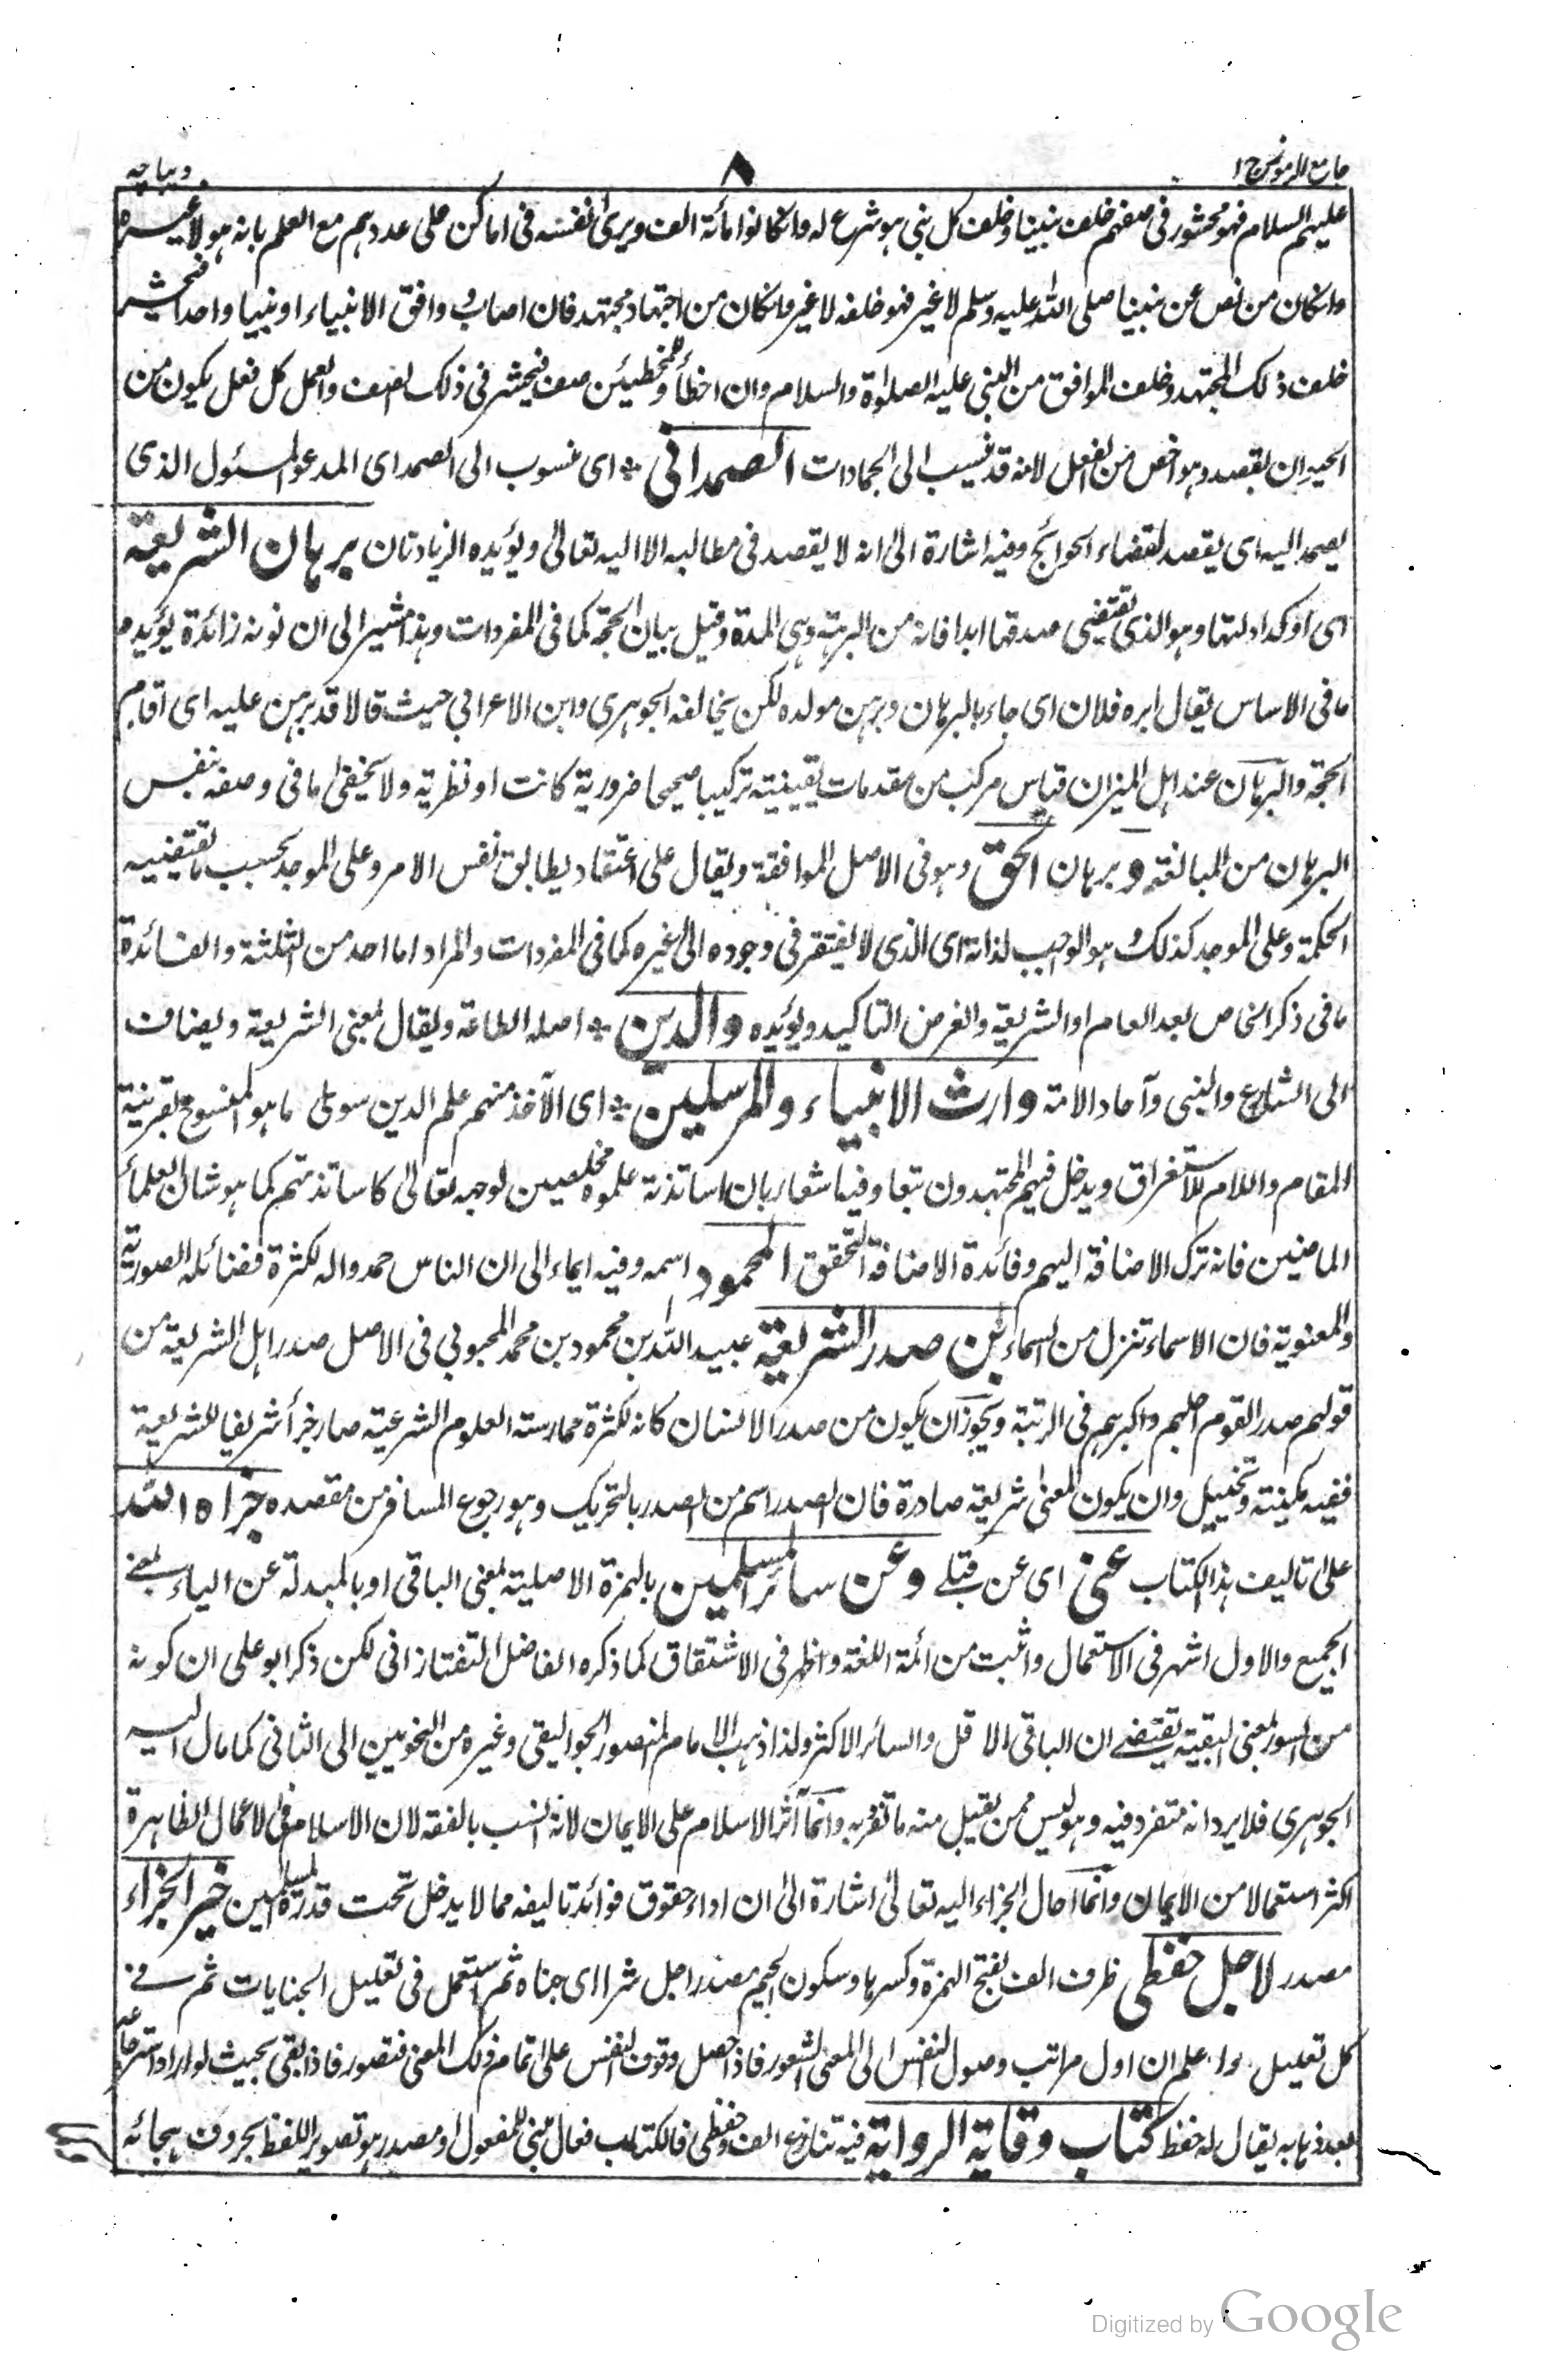 جامع الرموز ج ١
٨
ديباجه
عليهم السلام فهو محشور فى صفهم خلف نبينا وخلف كل نبى هو شرع له وانكانوا مائة الف ويرى نفسه فى اماكن على عددهم مع العلم بانه هو لا غيره
وانكان من نص عن نبينا صلى الله عليه وسلم لا غير فهو خلفه لا غير وانكان من اجتهاد مجتهد فان اصاب ووافق الانبياء او نبيا واحدا فيحشر
خلف ذلك المجتهد وخلف الموافق من النبى عليه الصلوة والسلام وان اخطأ وللمخطيئين صف فيحشر فى ذلك الصف والعمل كل فعل يكون من
الحيوان بقصد وهو اخص من الفعل لانه قد ينسب الى الجمادات الصمدانى * اى منسوب الى الصمد اى المدعو المسئول الذى
يصمد اليه اى يقصد لقضاء الحوائج وفيه اشارة الى انه لا يقصد فى مطالبه الا اليه تعالى ويؤيده الزيادتان برهان الشريعة
اى اوكد ادلتها وهو الذى يقتضى صدقها ابدا فانه من البرهة وهى المدة وقيل بيان الحجة كما فى المفردات وهذا مشير الى ان نونه زائدة يؤيده
ما فى الاساس يقال ابره فلان اى جاء بالبرهان وبرهن مولده لكن يخالفه الجوهرى وابن الاعرابى حيث قالا قد برهن عليه اى اقام
الحجة والبرهان عند اهل الميزان قياس مركب من مقدمات يقينية تركيبا صحيحا ضرورية كانت او نظرية ولا يخفى ما فى وصفه بنفس
البرهان من المبالغة وبرهان الحق وهو فى الاصل الموافقة ويقال على اعتقاد يطابق نفس الامر وعلى الموجد بحسب ما تقتضيه
الحكمة وعلى الموجد كذلك وهو الواجب لذاته اى الذى لا يفتقر فى وجوده الى غيره كما فى المفردات والمراد اما احد من الثلثة والفائدة
ما فى ذكر الخاص بعد العام او الشريعة والغرض التاكيد ويؤيده والدين * اصله الطاعة ويقال بمعنى الشريعة ويضاف
الى الشارع والنبى وآحاد الامة وارث الانبياء والمرسلين * اى الآخذ منهم علم الدين سوى ما هو المنسوخ بقرينة
المقام واللام للاستغراق ويدخل فيهم المجتهدون تبعا وفيه اشعار بان اساتذته علموه مخلصين لوجهه تعالى كاساتذتهم كما هو شان العلماء
الماضين فانه ترك الاضافة اليهم وفائدة الاضافة التحقق المحمود اسمه وفيه ايماء الى ان الناس حمدوا له لكثرة فضائله الصورية
والمعنوية فان الاسماء تنزل من السماء بن صدر الشريعة عبيد الله بن محمود بن محمد المحبوبى فى الاصل صدر اهل الشريعة من
قولهم صدر القوم اجلهم واكبرهم فى الرتبة ويجوز ان يكون من صدر الانسان كانه لكثرة ممارسته العلوم الشرعية صار جزأ شريفا للشريعة
ففيه مكينة وتخييل وان يكون المعنى شريعة صادرة فان الصدر اسم من الصدر بالتحريك وهو رجوع المسافر من مقصده جزاه الله
على تاليف هذا الكتاب عنى اى عن قبلے وعن سائر المسلمين بالهمزة الاصلية بمعنى الباقى او بالمبدلة عن الياء بمعنے
الجميع والاول اشهر فى الاستعمال واثبت من ائمة اللغة واظهر فى الاشتقاق كما ذكره الفاضل التفتازانى لكن ذكر ابو على ان كونه
من السور بمعنى البقية يقتضے ان الباقى الاقل والسائر الاكثر ولذا ذهب الامام المنصور الجواليقى وغيره من النحويين الى الثانى كما مال اليه
الجوهرى فلا يرد انه متفرد فيه وهو ليس ممن يقبل منه ما تفرد به وانما آثر الاسلام على الايمان لانه انسب بالفقه لان الاسلام فى الاعمال الظاهرة
اكثر استعمالا من الايمان وانما احال الجزاء اليه تعالى اشارة الى ان اداء حقوق فوائد تاليفه مما لا يدخل تحت قدرة المسلمين خير الجزاء
مصدر لاجل حفظى ظرف الف بفتح الهمزة وكسرها وسكون الجيم مصدر اجل شرا اى جناه ثم استعمل فى تعليل الجنايات ثم فے
كل تعليل واعلم ان اول مراتب وصول النفس الى المعنى الشعور فاذا حصل وقوف النفس على تمام ذلك المعنى فتصور فاذا بقى بحيث لو اراد استرجاعه
بعد ذهابه يقال له حفظ كتاب وقاية الرواية فيه تنازع الف وحفظى فالكتاب فعال مبنى للمفعول او مصدر هو تصوير اللفظ بحروف هجائه
Digitized by Google